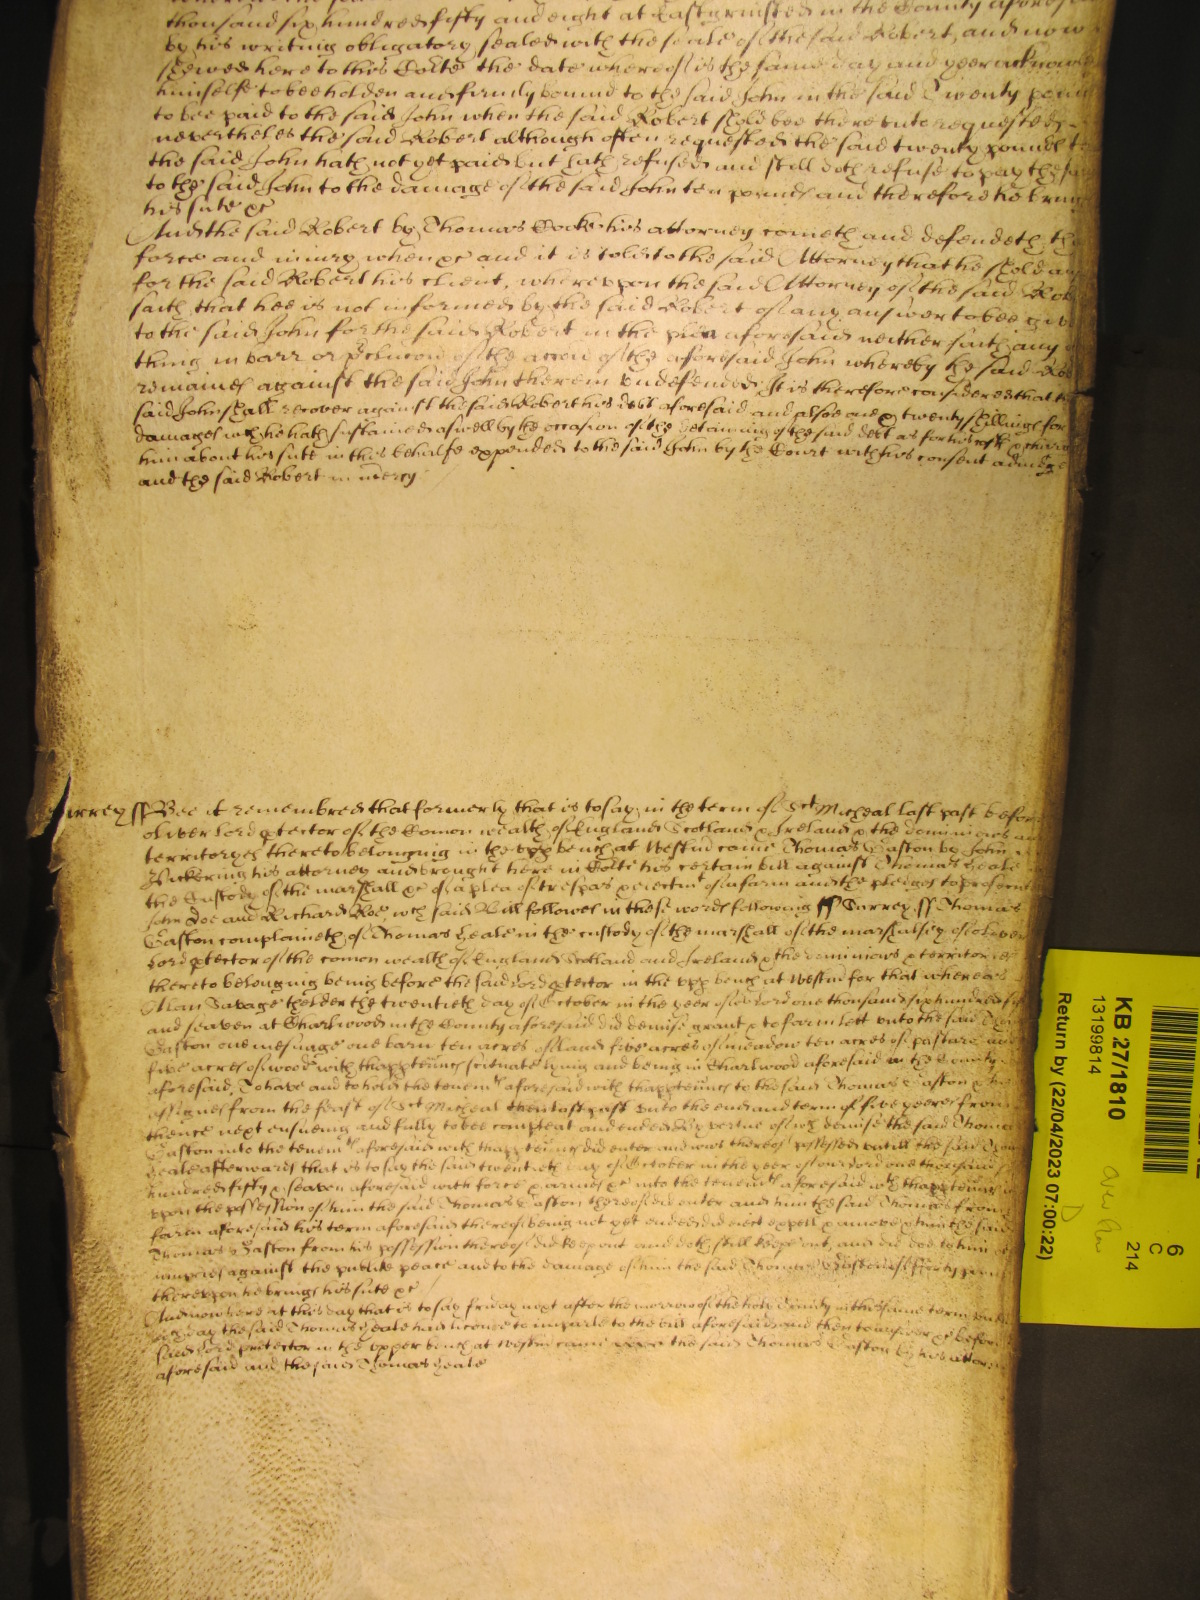 thousand six hundred fifty and eight at Eastgrinsted in the County aforesa
by his writing obligatory sealed with the seale of the said Robert, and now
shewed here to this Co͞rte the date whereof is the same day and yeer acknow
himselfe to bee holden and firmly bound to the said John in the said Twenty poun
to bee paid to the said John when the said Robert shold bee there unto requested
nevertheles the said Robert although often requested the said twenty pounds to
the said John hath not yet paid but hath refused and still doth refuse to pay the sa
to the said John to the damage of the said John ten pounds and therefore he bring
his sute &c
And the said Robert by Thomas Cocke his attorney cometh and defendeth the
force and iniury when &c and it is told to the said Attorney that he shold an
for the said Robert his client, whereupon the said Attorney of the said Rob
saith that hee is not informed by the said Robert of any answer to bee give
to the said John for the said Robert in the plea aforesaid neither saith any
thing in barr or of the accon of the aforesaid John whereby the said Rob
remaines against the said John therein undefended It is therefore considered that the
said John shall recover against the said Robert his debt aforesaid and alsoe one & twenty shillings for
damages wch he hath susteined aswell by the occasion of the detaining of the said debt as for his costs & charg
him about his sute in this behalfe expended to the said John by the Court with his consent adiudge
and the said Robert in mercy
urrey ss Bee it remembred that formerly that is to say in the term of Sct Micheal last past before
Oliver Lord p̱tector of the Comon wealth of England Scotland & Ireland & the dominions and
territoryes thereto belonging in the upp̱ bench at Westm̄ came Thomas Easton by John
Pickering his attorney and brought here in Co͞rte his certain bill against Thomas Heale in
the Custody of the marshall &c of a plea of trespas & eiectmt of a farm and the pledges to prosecut
John Doe and Richard Roe, wch said Bill followes in these words following ss Surrey ss Thomas
Easton complaineth of Thomas Heale in the custody of the marshall of the marshalsey of Oliver
Lord p̱tector of the comon wealth of England Scotland and Ireland & the dominions & territories
thereto belonging being before the said Lord p̱tector in the upp̱ bench at Westm̄ for that whereas
Allan Savage thelder the twentieth day of October in the yeer of our Lord one thousand six hundred fif
and seaven at Charlwood in the County aforesaid did demise grant & to farm lett unto the said Thom
Easton one mesuage one barn ten acres of land five acres of meadow ten acres of pasture and
five acres of wood with thapp̱teunc̄s scituate lying and being in Charlwood aforesaid in the County
aforesaid, To have and to hold the tenemts aforesaid with thapp̱teunc̄s to the said Thomas Easton & his
assignes from the feast of Sct Micheal then last past unto the end and term of five yeeres from
thence next ensueing and fully to bee compleat and ended By vertue of wch demise the said Thomas
Easton into the tenemts aforesaid with thapp̱teunc̄s did enter and was thereof possessed untill the said Thom
Heale afterwards that is to say the said twentieth day of October in the yeer of our Lord one thousand
hundred fifty & seaven aforesaid with force & armes &c into the tenemts aforesaid wth thapp̱teunc̄s
upon the possession of him the said Thomas Easton thereof did enter and him the said Thomas from
farm aforesaid his term aforesaid thereof being not yet ended did eiect expell & amove & him the said
Thomas Easton from his possession thereof did keep out and doth still keepe out, and did doe to him
iniuries against the publike peace and to the damage of him the said Thomas Easton of forty poun
thereupon he brings his sute &c
And now here at this day that is to say friday next after the morrow of the holy Trinity in the same term untill
day the said Thomas Heale had licence to imparle to the bill aforesaid and then to answer &c before
said Lord protector in the upper bench at Westm̄ came the said Thomas Easton by his attor
aforesaid and the said Thomas Heale
KB 27/1810
13199814
Return by (22/04/2023 07:00:22)
D
6
C
214